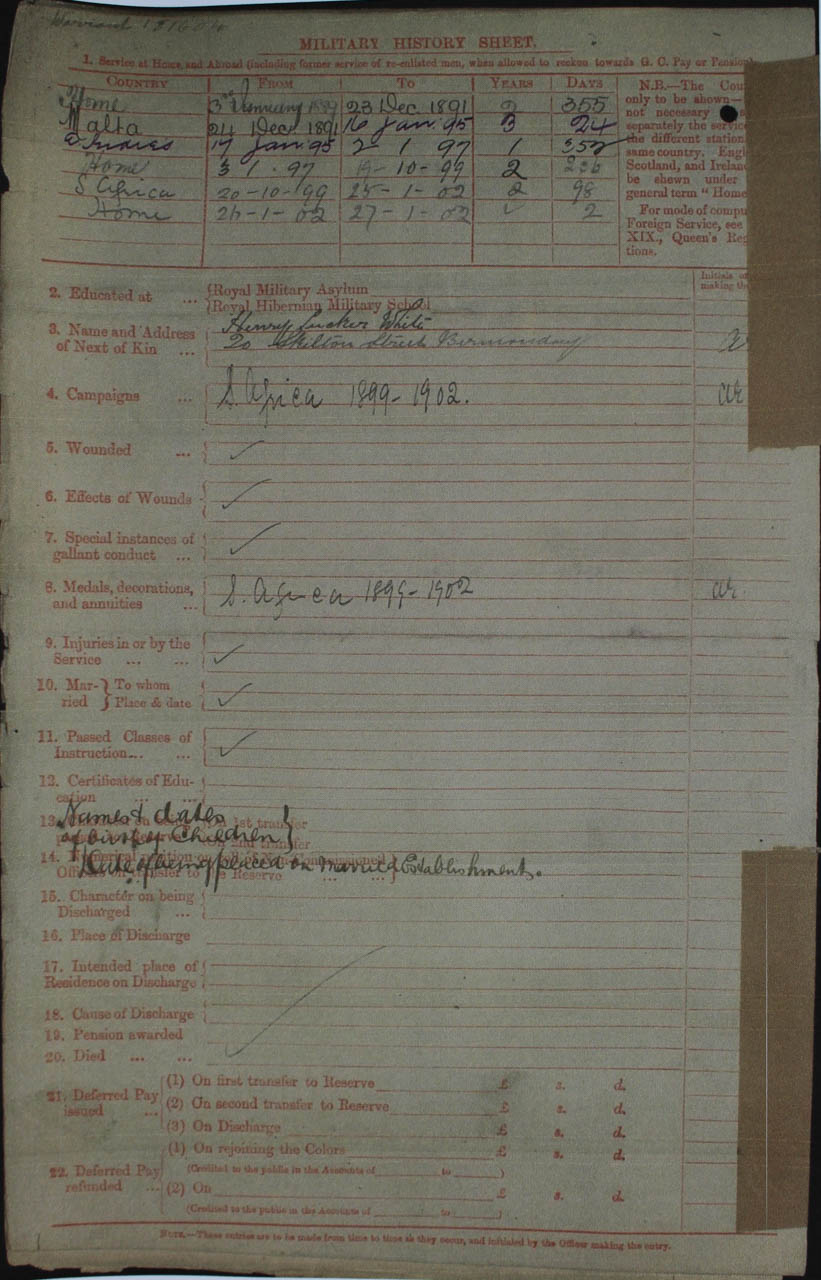 Warrant 181604
MILITARY HISTORY SHEET.
1. Service at Home, and Abroad (including former service of re-enlisted men, when allowed to reckon towards G. C. Pay or Pension)
COUNTRY FROM TO YEARS DAYS
Home 3rd January 1889 23 Dec 1891 2 355
Malta 24 Dec 1891 16 Jan. 95 3 24
E Indies 17 Jan 95 2-1 97 1 352
Home 3 1. 97 19-10-99 2
S Africa 20-10-99 25-1-02 2 98
Home 26-1-02 27-1-02 2
N.B.—The Coun
only to be shown—
not necessary
separately the service
the different station
same country. Engl
Scotland, and Irelan
be shewn under
general term "Home
For mode of compu
Foreign Service, see
XIX., Queen's Reg
tions.
Initials of
making the
2. Educated at ... Royal Military Asylum
Royal Hibernian Military School
3. Name and Address of Next of Kin ... Henry Tucker White
20 Skilton Street Bermondsey
4. Campaigns ... S. Africa 1899-1902.
5. Wounded ...
6. Effects of Wounds
7. Special instances of gallant conduct ...
8. Medals, decorations, and annuities ... S. Africa 1899-1902
9. Injuries in or by the Service ... ...
10. Married To whom
Place & date
11. Passed Classes of Instruction... ...
12. Certificates of Education
Names & dates
of birth of Children
13. 1st transfer
2nd transfer
Date of being placed on married Establishment.
14.
to the Reserve ... ...
15. Character on being Discharged ...
16. Place of Discharge
17. Intended place of Residence on Discharge
18. Cause of Discharge
19. Pension awarded
20. Died ... ...
21. Deferred Pay issued ... (1) On first transfer to Reserve £ s. d.
(2) On second transfer to Reserve £ s. d.
(3) On Discharge £ s. d.
22. Deferred Pay refunded ... (1) On rejoining the Colors £ s. d.
(Credited to the public in the Accounts of to )
(2) On £ s. d.
(Credited to the public in the Accounts of to )
NOTE.—These entries are to be made from time to time as they occur, and initialed by the Officer making the entry.